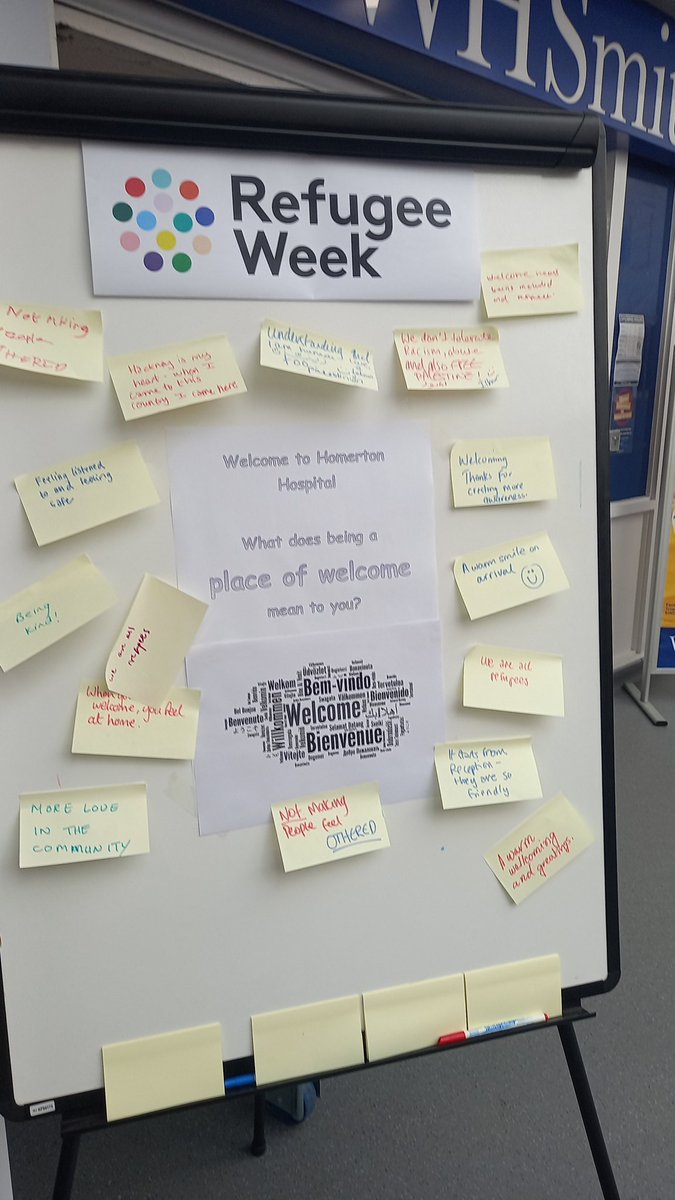 WHSmi
Refugee
Week
Welcome
being included
and respect.
Not Making
People
OTHERED
Hackney is my
heart - when I
came to this
country I came here
Understanding that
We don't tolerate
Racism, abuse
and also FREE
PALESTINE
Welcome to Homerton
Hospital
What does being a
place of welcome
mean to you?
Feeling listened
to and feeling
safe
Welcoming
Thanks for
creating more
awareness.
A warm smile on
arrival
Being
kind!
we are all
We are all
refugees
welcome, you feel
at home.
Bem-vindo
Welcome
Bienvenue
Willkommen
Welkom
Benvenuto
Bienvenido
Vitejte
Üdvözlet
Selamat Datang
It starts from
Reception -
they are so
friendly
MORE LOVE
IN THE
COMMUNITY
NOT Making
People feel
OTHERED
A warm
wellcoming
and greatings.